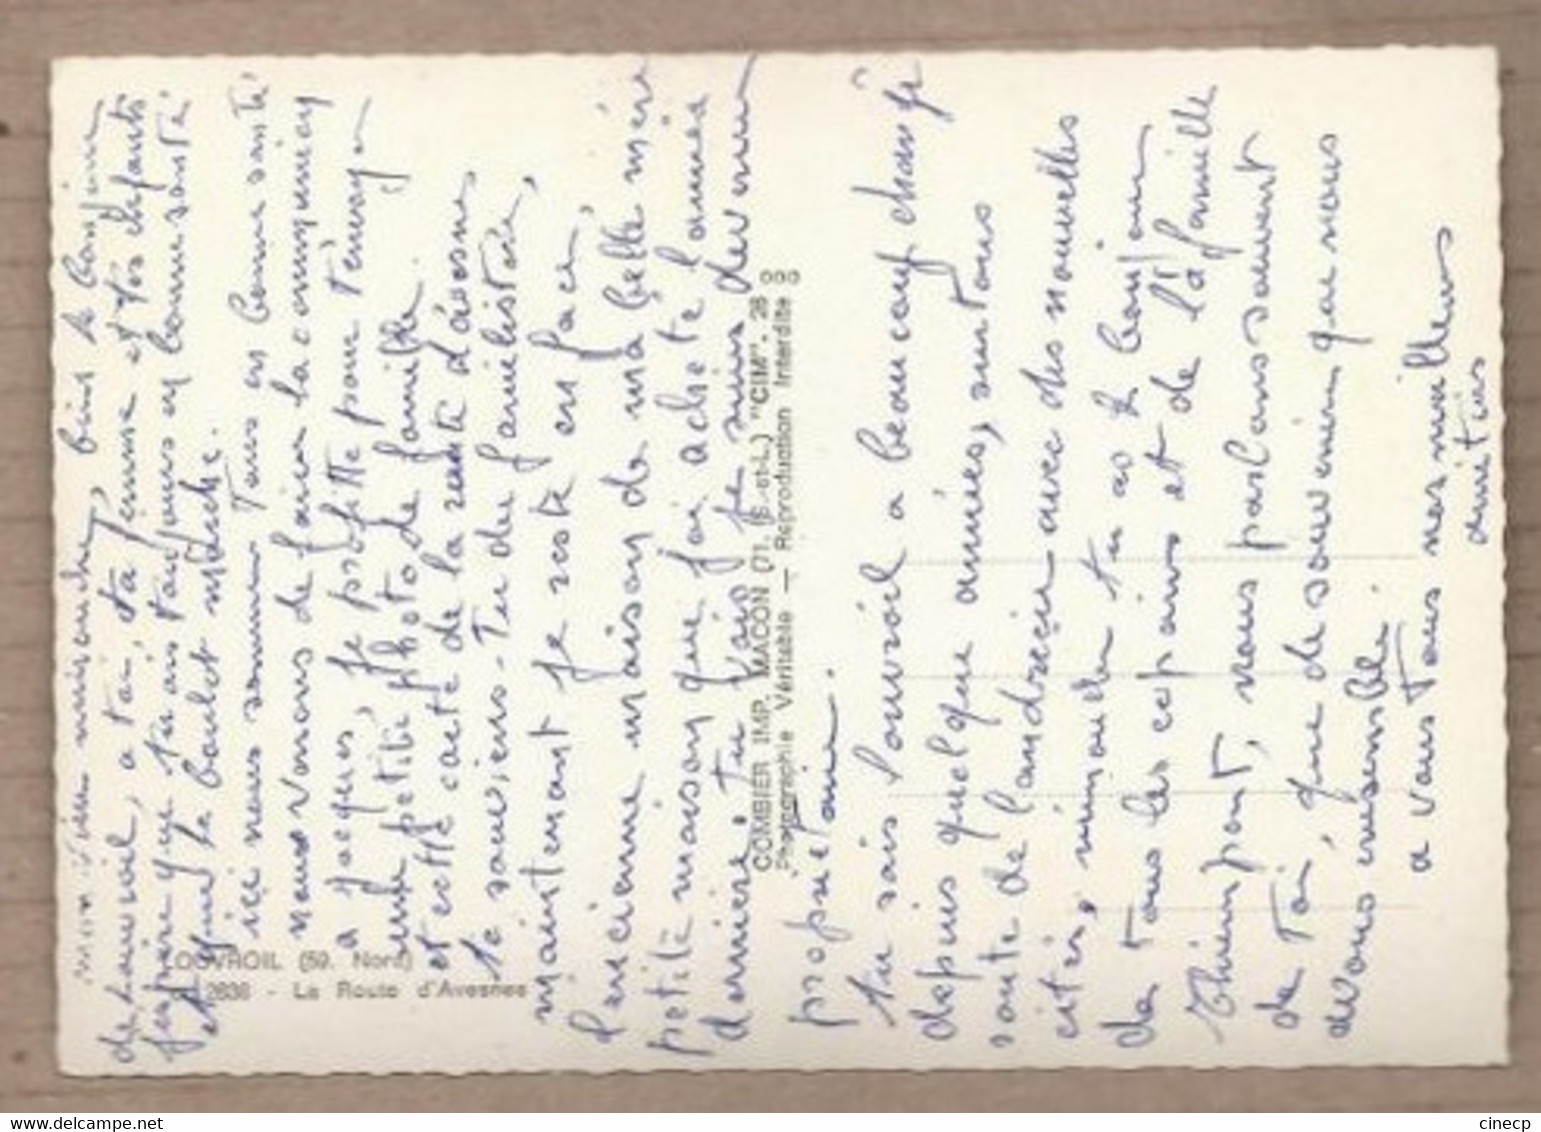 Mon vieu mimouche, bien le bonjour
de Louvroil, a toi, ta femme et tes enfants
j'espère que tu ais toujours en bonne santé
et que le boulot marche.
ici nous sommes Tous en bonne santé
nous venons de faire la communion
a jacques, je profitte pour t'envoyer
une petite photo de famille.
et cette carte de la route d'avesnes
te souviens-Tu du familistère,
maintenant je reste en face,
l'encienne maison de ma belle mère
petite maison que j'ai acheté l'année
dernière. tu vois je suis devenu
propriétaire.
tu sais Louvroil a beaucoup changé
depuis quelque années, surtous
route de landrecies avec des nouvelles
cités, mimouche tu as le bonjour
de tous les copains et de la famille
Thienpont, nous parlons souvent
de toi, que de souvenir que nous
avons ensemble.
a vous Tous nos meilleurs
amitiés
LOUVROIL (59. Nord)
2636 - La Route d'Avesnes
COMBIER IMP. MACON (71. (S.-et-L.) "CIM". 26
Photographie Véritable — Reproduction Interdite
delcampe.net
cinecp